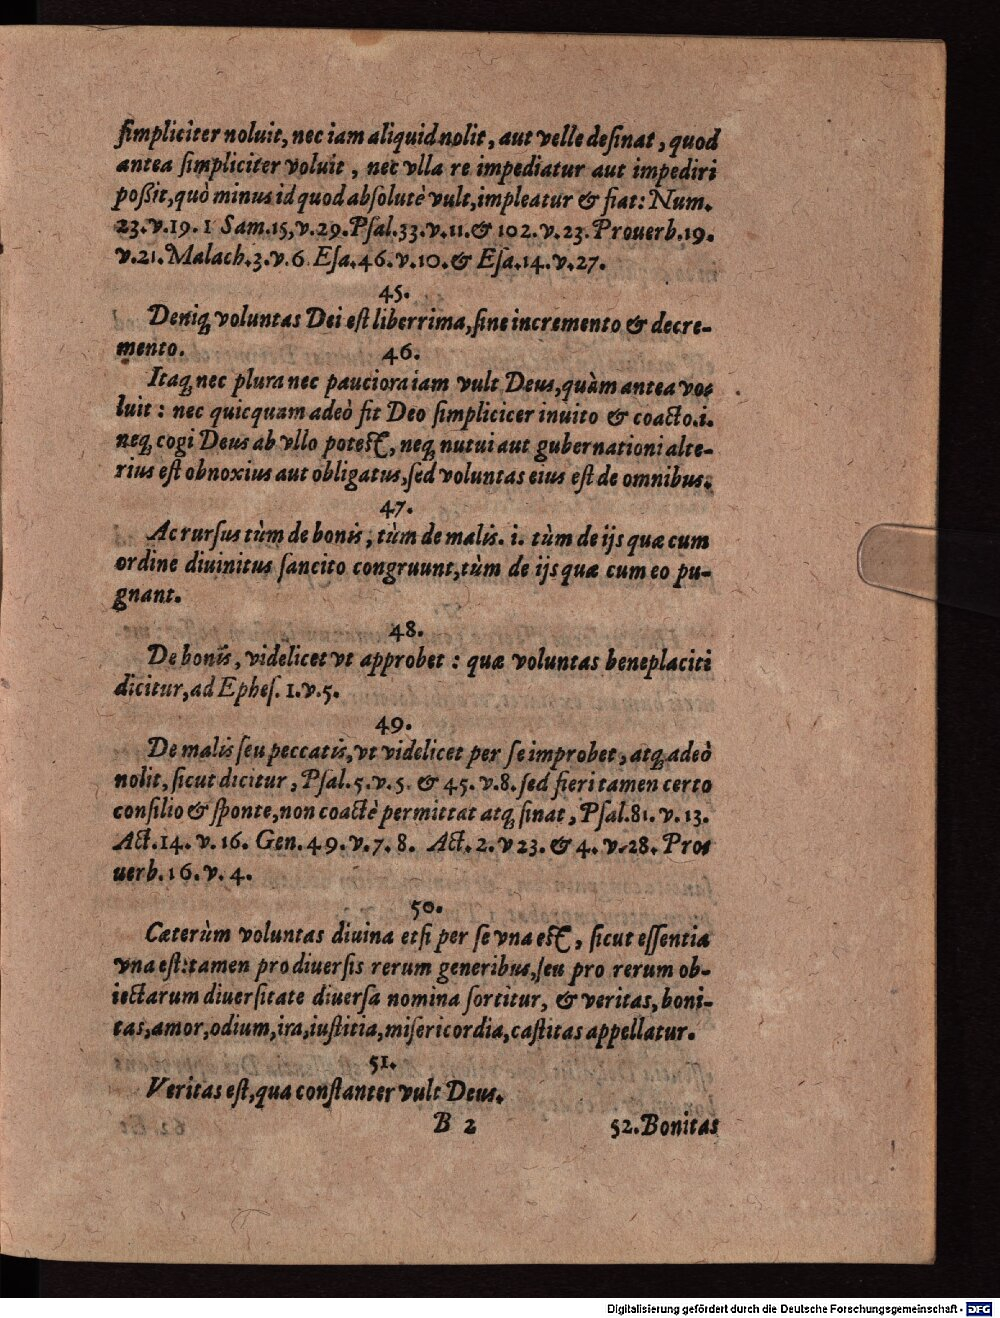 ſimpliciter noluit, nec iam aliquid nolit, aut velle deſinat, quod
antea ſimpliciter voluit, nec vlla re impediatur aut impediri
poßit, quò minus id quod abſolutè vult, impleatur & fiat: Num.
23. v. 19. 1 Sam. 15, v. 29. Pſal. 33. v. 11. & 102. v. 23. Prouerb. 19.
v. 21. Malach. 3. v. 6 Eſa. 46. v. 10. & Eſa. 14. v. 27.
45.
Deniq́ voluntas Dei est liberrima, ſine incremento & decre-
mento.
46.
Itaq́ nec plura nec pauciora iam vult Deus, quàm antea vo-
luit: nec quicquam adeò fit Deo ſimplicicer inuito & coacto. i.
neq́ cogi Deus ab vllo potest, neq́ nutui aut gubernationi alte-
rius est obnoxius aut obligatus, ſed voluntas eius est de omnibus.
47.
Ac rurſus tùm de bonis, tùm de malis. i. tùm de ijs quæ cum
ordine diuinitus ſancito congruunt, tùm de ijs quæ cum eo pu-
gnant.
48.
De bonis, videlicet vt approbet: quæ voluntas beneplaciti
dicitur, ad Epheſ. 1. v. 5.
49.
De malis ſeu peccatis, vt videlicet per ſe improbet, atq́ adeò
nolit, ſicut dicitur, Pſal. 5. v. 5. & 45. v. 8. ſed fieri tamen certo
conſilio & ſponte, non coactè permittat atq́ ſinat, Pſal. 81. v. 13.
Act. 14. v. 16. Gen. 49. v. 7. 8. Act. 2. v 23. & 4. v. 28. Pro-
uerb. 16. v. 4.
50.
Cæterùm voluntas diuina etſi per ſe vna est, ſicut eſſentia
vna est: tamen pro diuerſis rerum generibus, ſeu pro rerum ob-
iectarum diuerſitate diuerſa nomina ſortitur, & veritas, boni-
tas, amor, odium, ira, iustitia, miſericordia, castitas appellatur.
51.
Veritas est, qua constanter vult Deus.
B 2 52. Bonitas
Digitalisierung gefördert durch die Deutsche Forschungsgemeinschaft - DFG